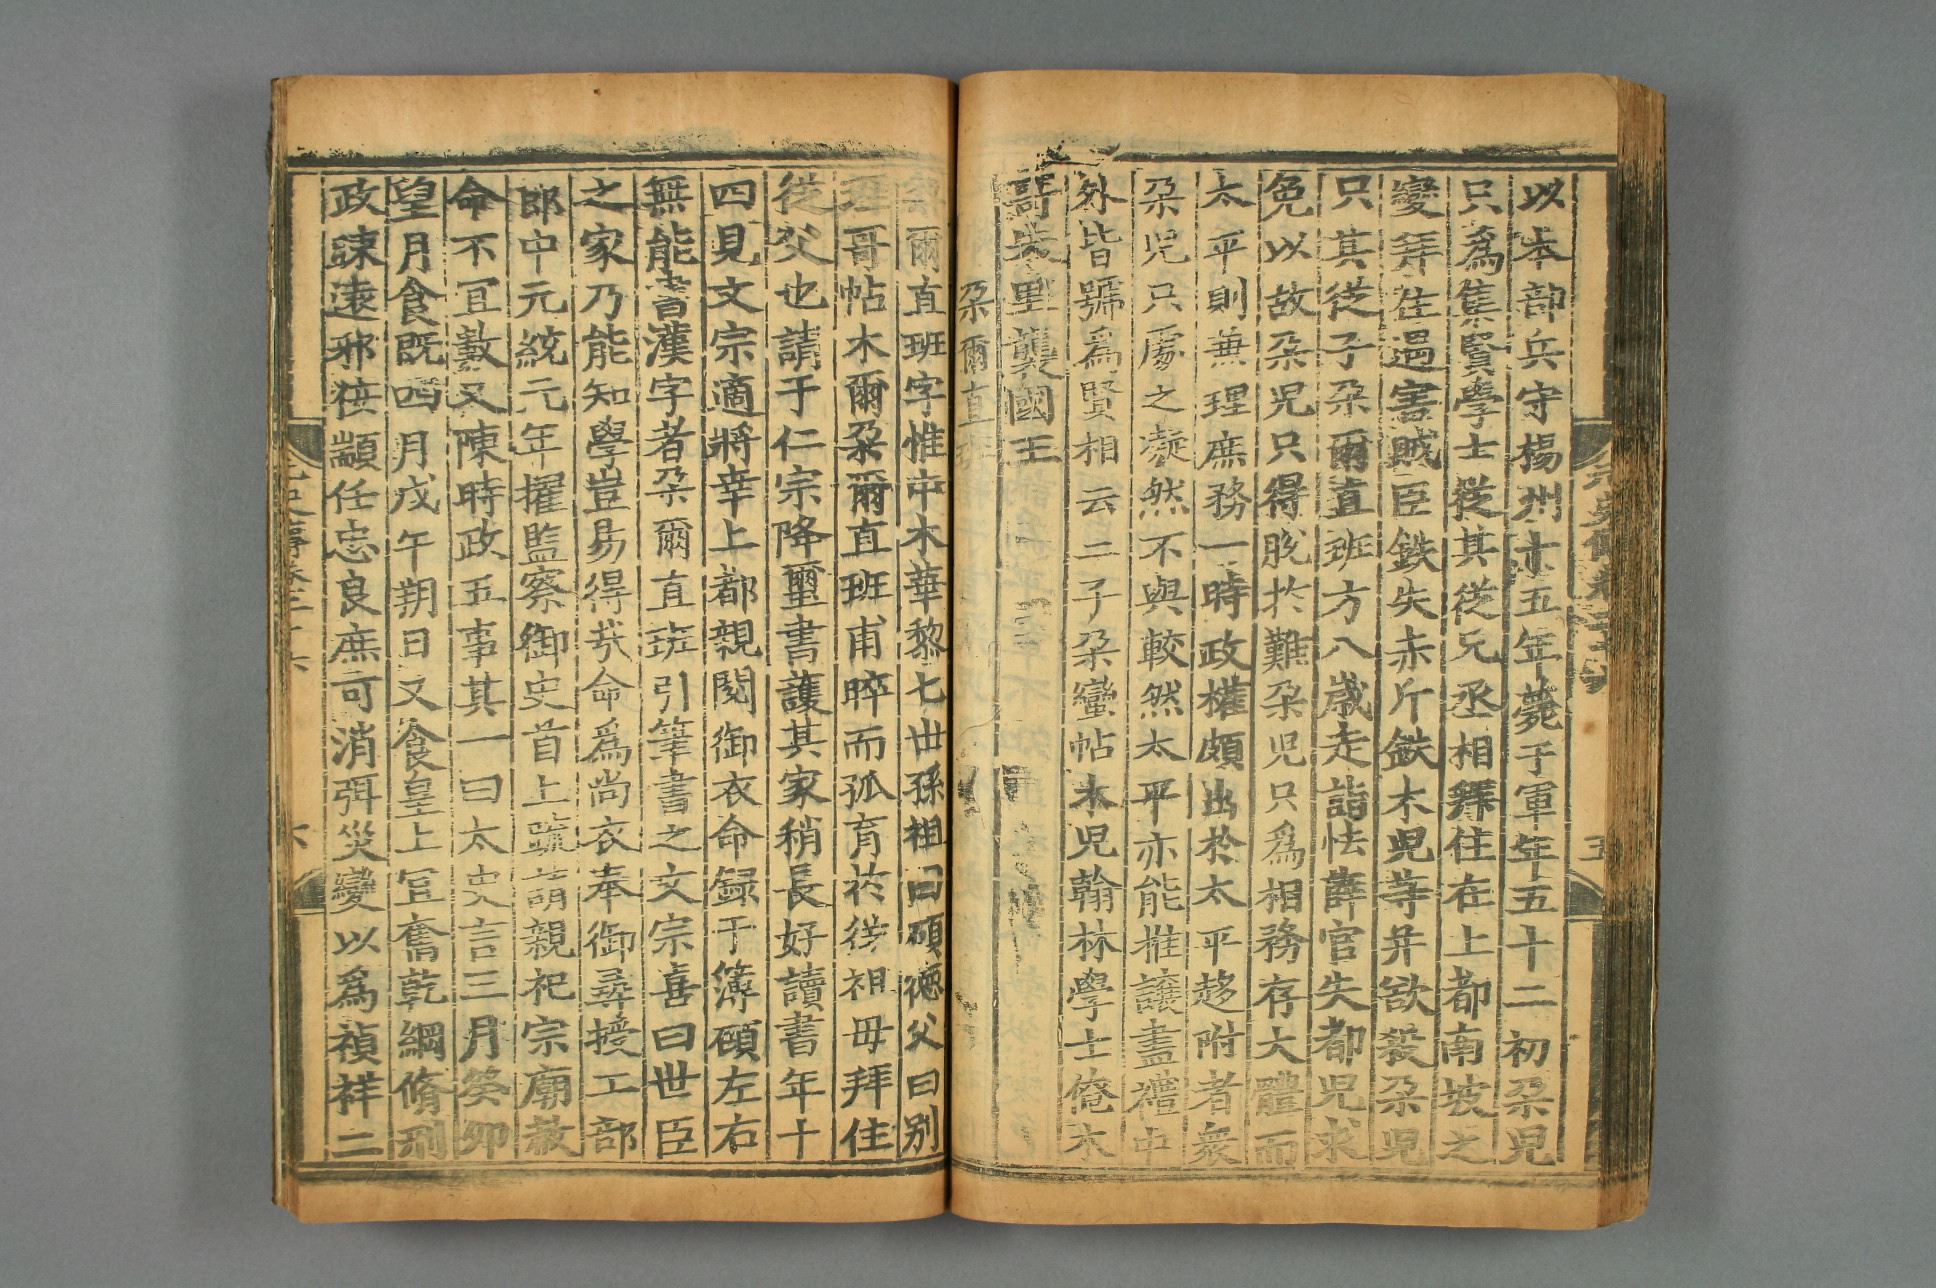 以本部兵守楊州十五年薨子軍年五十二初朶児
只爲集賢學士從其從兄丞相拜住在上都南坡之
變拜住遇害賊臣鉄失赤斤鉄木児等并欲殺朶児
只其從子朶爾直班方八歲走詣怯薛官失都児求
免以故朶児只得脫於難朶児只爲相務存大體而
太平則兼理庶務一時政權頗出於太平趍附者衆
朶児只處之凝然不與較然太平亦能推讓盡禮中
外皆號爲賢相云二子朶蠻帖木児翰林學士俺木
哥失里襲國王
朶爾直班
爾直班字惟中木華黎七世孫祖曰碩德父曰別
理哥帖木爾朶爾直班甫晬而孤育於從祖母拜住
從父也請于仁宗降璽書護其家稍長好讀書年十
四見文宗適將幸上都親閱御衣命録于簿顧左右
無能書漢字者朶爾直班引筆書之文宗喜曰世臣
之家乃能知學豈易得哉命爲尚衣奉御尋授工部
郎中元統元年擢監察御史首上疏請親祀宗廟赦
命不宜數又陳時政五事其一曰太史言三月癸卯
望月食既四月戊午朔日又食皇上宜奮乾綱脩刑
政疎遠邪侫顓任忠良庶可消弭災變以爲禎祥二
元史傳卷二十六
六
五